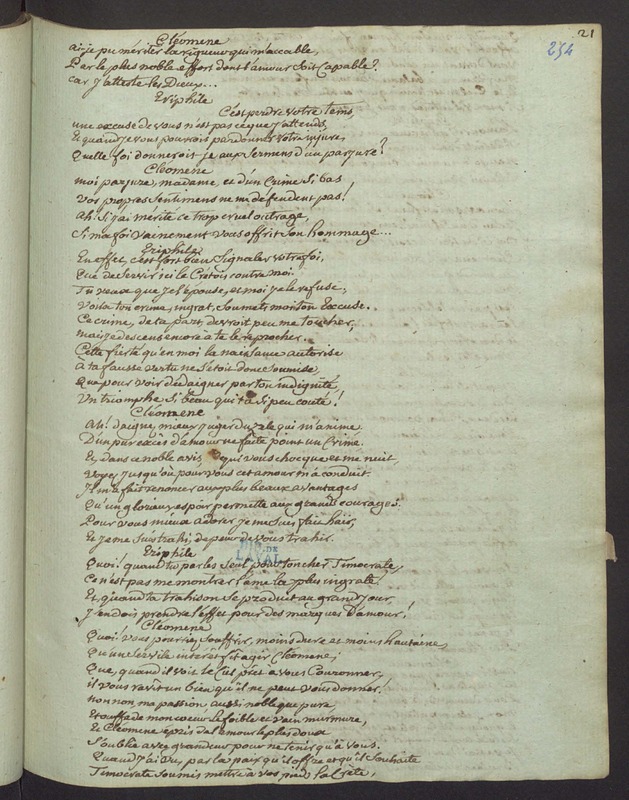 21
254
Cléomene
ai-je pu mériter la rigueur qui m'accable,
Par le plus noble effort dont l'amour soit Capable?
car j'atteste les Dieux...
Eriphile
C'est perdre votre tems,
une excuse de vous n'est pas ce que j'attends,
Et quand je vous pourrois pardonner votre injure,
Quelle foi donnerois-je aux Sermens d'un parjure?
Cléomene
moi parjure, madame, et d'un Crime Si bas
Vos propres Sentimens ne me défendent pas!
Ah! Si j'ai mérité ce trop cruel outrage,
Si ma foi vainement vous offrit Son hommage...
Eriphile
En effet, c'est fort bien Signaler votre foi,
Que de Servir ici le Cretois contre moi.
Tu veux que je l'épouse, et moi je le refuse,
Voila ton crime, ingrat, Soumets moi ton Excuse.
Ce crime, de ta part, devroit peu me toucher,
mais je descens encore à te le reprocher.
Cette fierté qu'en moi la naissance autorise
à ta fausse vertu ne S'étoit donc Soumise,
Que pour voir dédaigner par ton indignité,
Un triomphe Si beau qui t'a Si peu couté!
Cléomene
Ah! daignez mieux juger du zele qui m'anime
D'un pur excès d'amour ne faites point un Crime.
Et dans ce noble avis qui vous choque et me nuit,
Voyez jusqu'où pour vous cet amour m'a conduit.
Il m'a fait renoncer aux plus beaux avantages
Qu'un glorieux espoir permette aux grands courages.
Pour vous mieux adorer je me Suis fait haïr,
Et je me Suis trahi, de peur de vous trahir.
BIB. DE
LAVAL
Eriphile
Quoi! quand tu parles Seul pour toucher Timocrate,
Ce n'est pas me montrer l'ame la plus ingrate!
Et quand ta trahison Se produit au grand jour,
J'en dois prendre l'effet pour des marques d'amour!
Cléomene
Quoi! vous pourriez Souffrir, moins dure et moins hautaine,
Qu'un Servile intérêt fit agir Cléomene;
Que, quand il voit le Ciel prêt à vous Couronner,
il vous ravît un bien qu'il ne peut vous donner!
non non, ma passion, aussi noble que pure,
Etouffa de mon coeur le foible et vain murmure,
Et Cleomene épris de l'amour le plus doux
S'oublie avec grandeur pour ne tenir qu'à vous.
Quand j'ai vu, par la paix qu'il offre et qu'il Souhaite
Timocrate Soumis mettre à vos pieds la Crète,